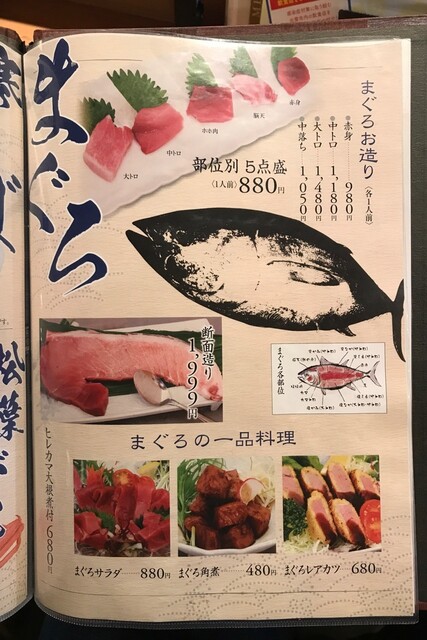 まぐろ
赤身
脳天
ホホ肉
中トロ
大トロ
部位別 5点盛
〈1人前〉880円
まぐろお造り〈各1人前〉
赤身 980円
中トロ 1,180円
大トロ 1,480円
中落ち 1,050円
断面造り
1,999円
まぐろ各部位
まぐろの一品料理
ヒレカマ大根煮付 680円
まぐろサラダ 880円
まぐろ角煮 480円
まぐろレアカツ 680円
松葉が